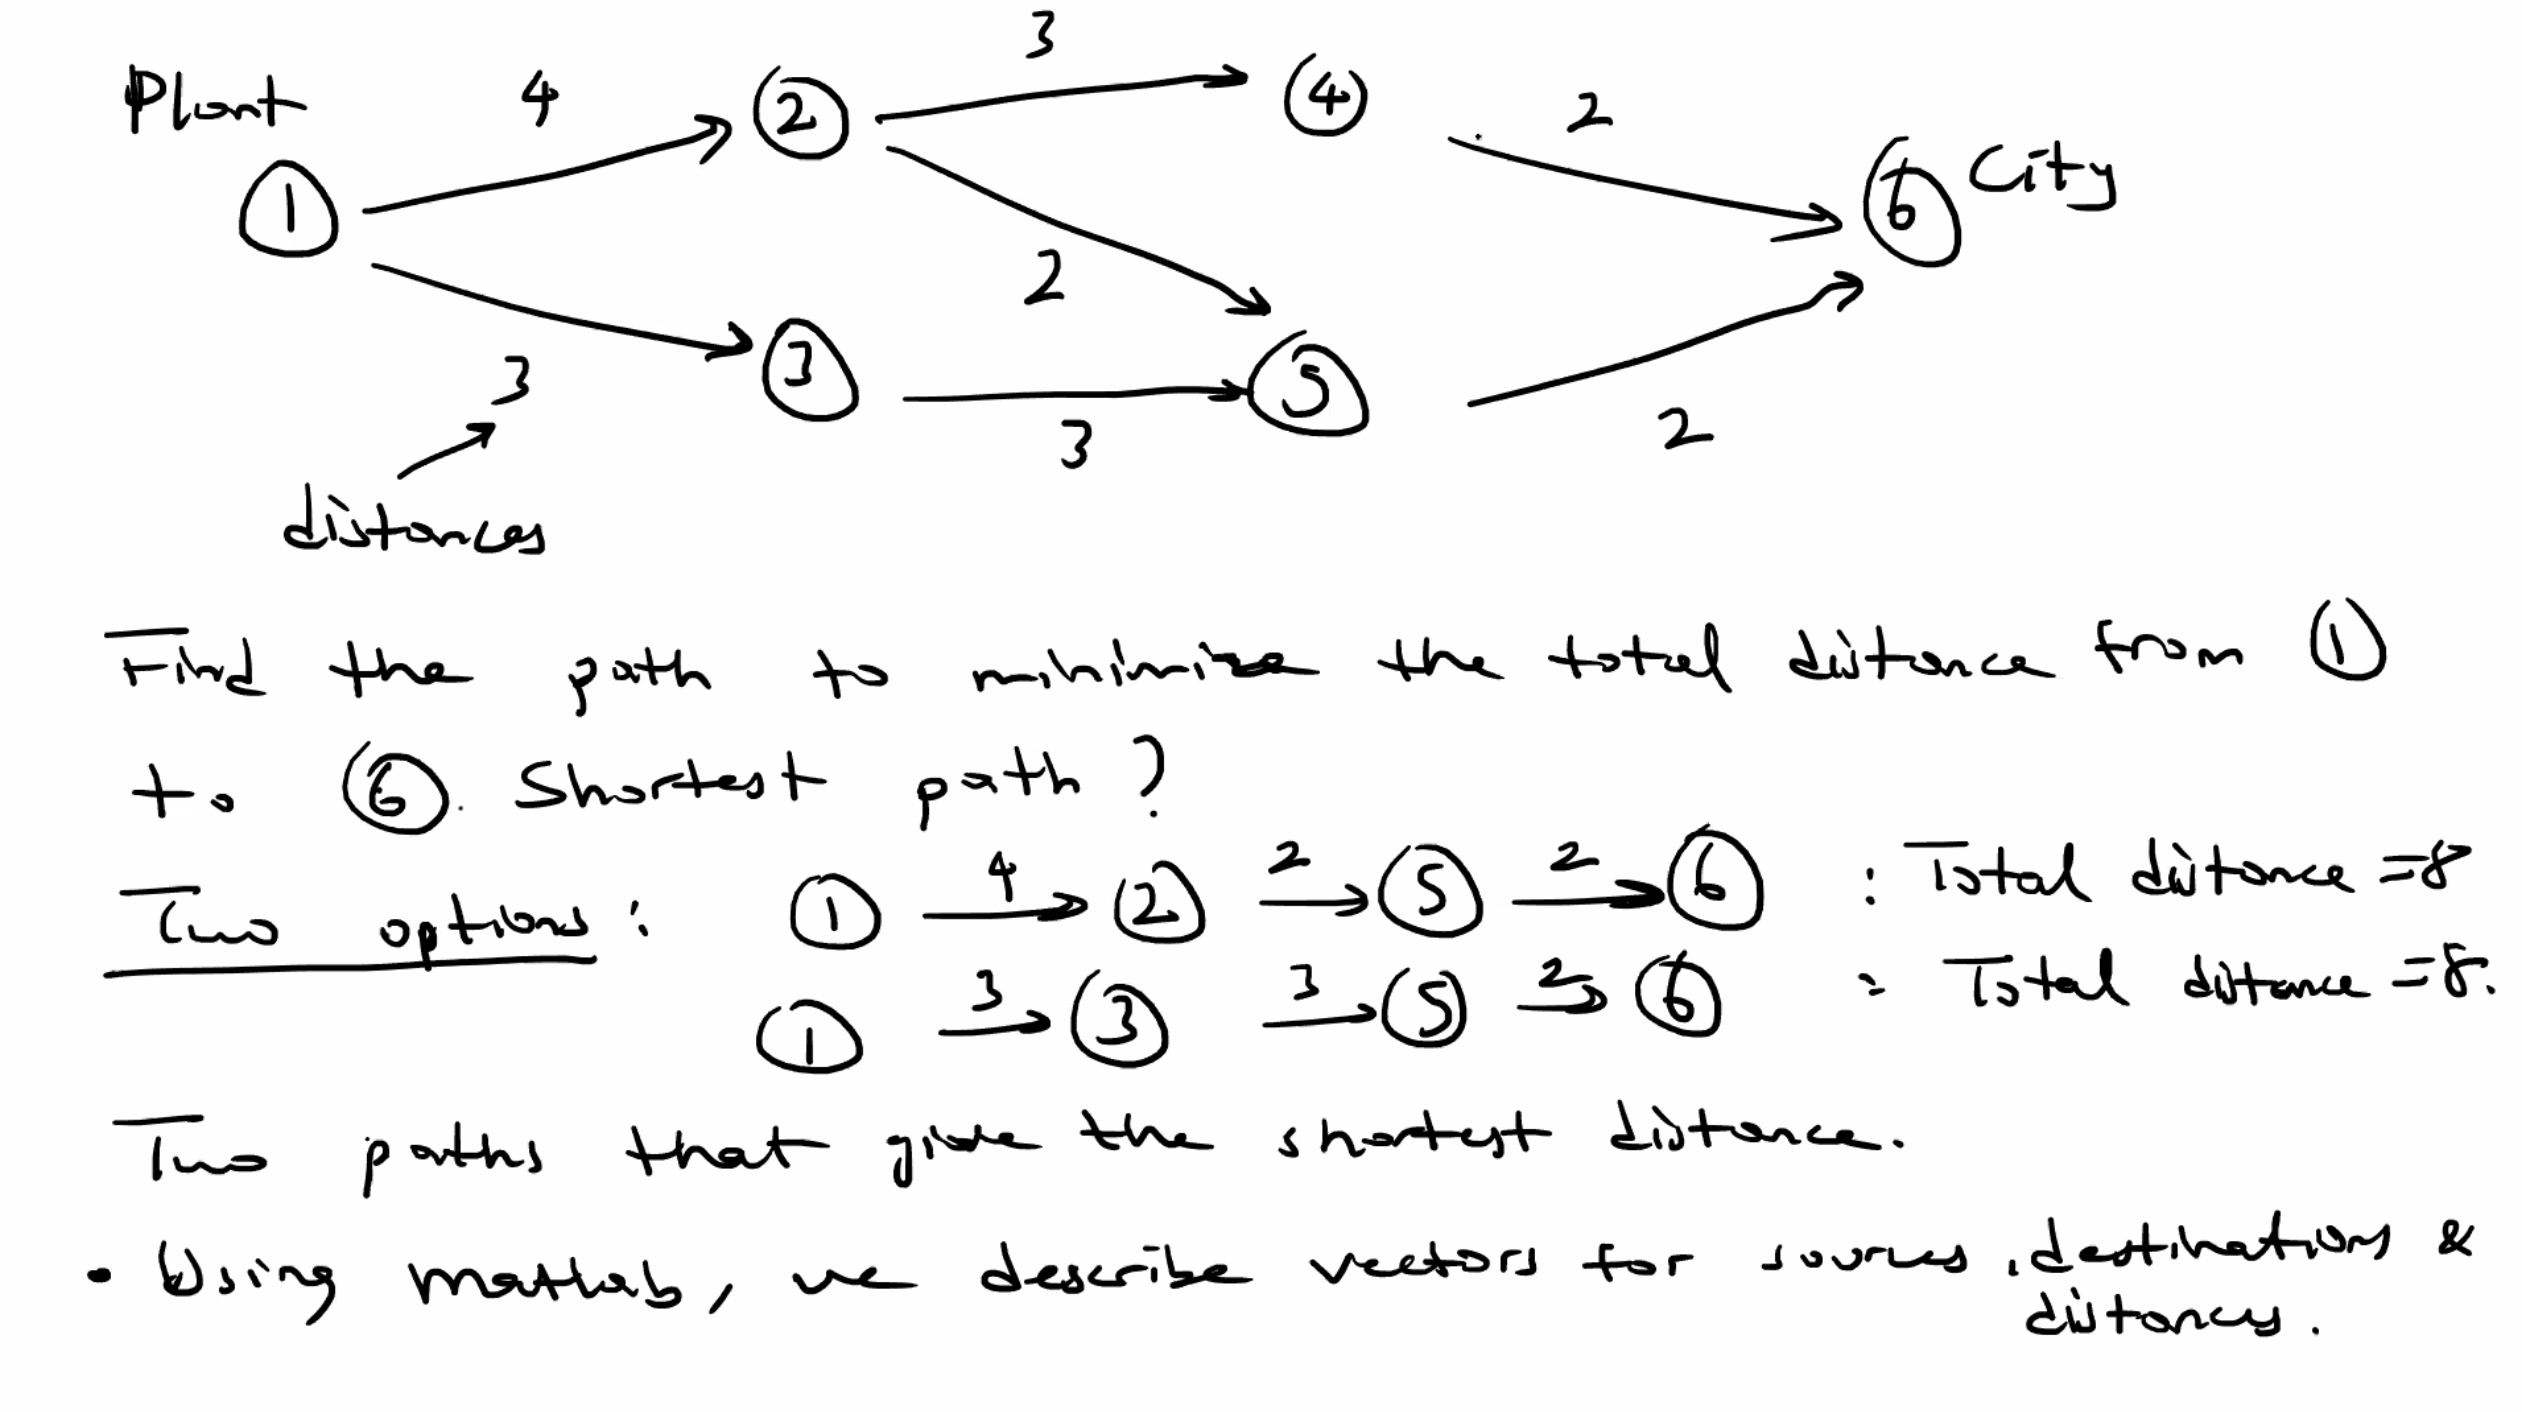 Plant 4 ② 3 ④ 2
① ⑥ City
2
3 ③ 3 ⑤ 2
distances
Find the path to minimize the total distance from ①
to ⑥. Shortest path ?
Two options : ① 4 ② 2 ⑤ 2 ⑥ : Total distance = 8
① 3 ③ 3 ⑤ 2 ⑥ : Total distance = 8.
Two paths that give the shortest distance.
• Using matlab, we describe vectors for sources, destinations &
distances.